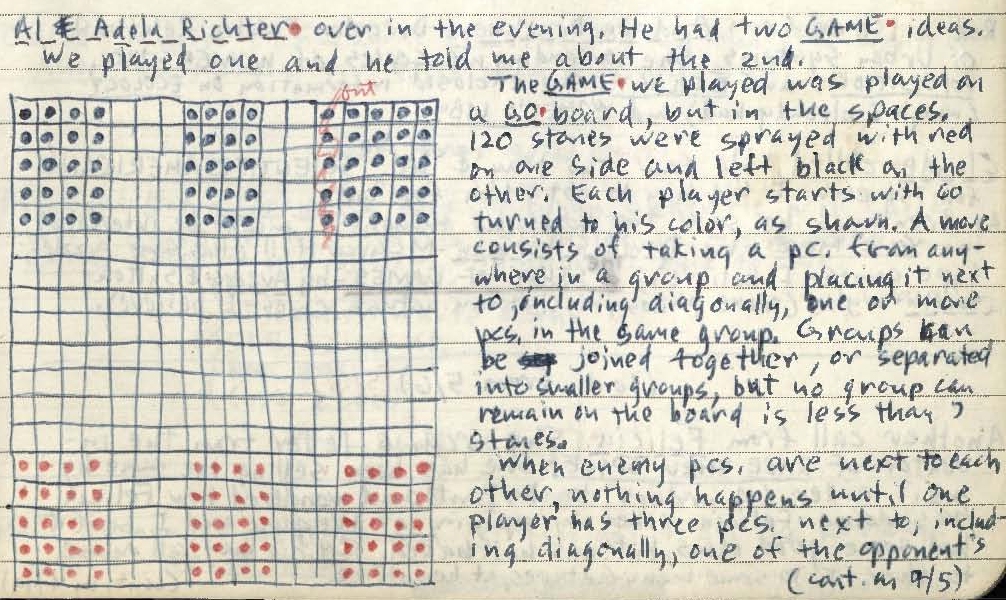 Al & Adela Richter• over in the evening. He had two GAME• ideas.
We played one and he told me about the 2nd.
The GAME• we played was played on
out
a GO• board, but in the spaces.
120 stones were sprayed with red
on one side and left black on the
other. Each player starts with 60
turned to his color, as shown. A move
consists of taking a pc. from any-
where in a group and placing it next
to, including diagonally, one or more
pcs. in the same group. Groups can
be joined together, or separated
into smaller groups, but no group can
remain on the board is less than
stones.
When enemy pcs. are next to each
other, nothing happens until one
player has three pcs. next to, includ-
ing diagonally, one of the opponent's
(cont. on 9/5)